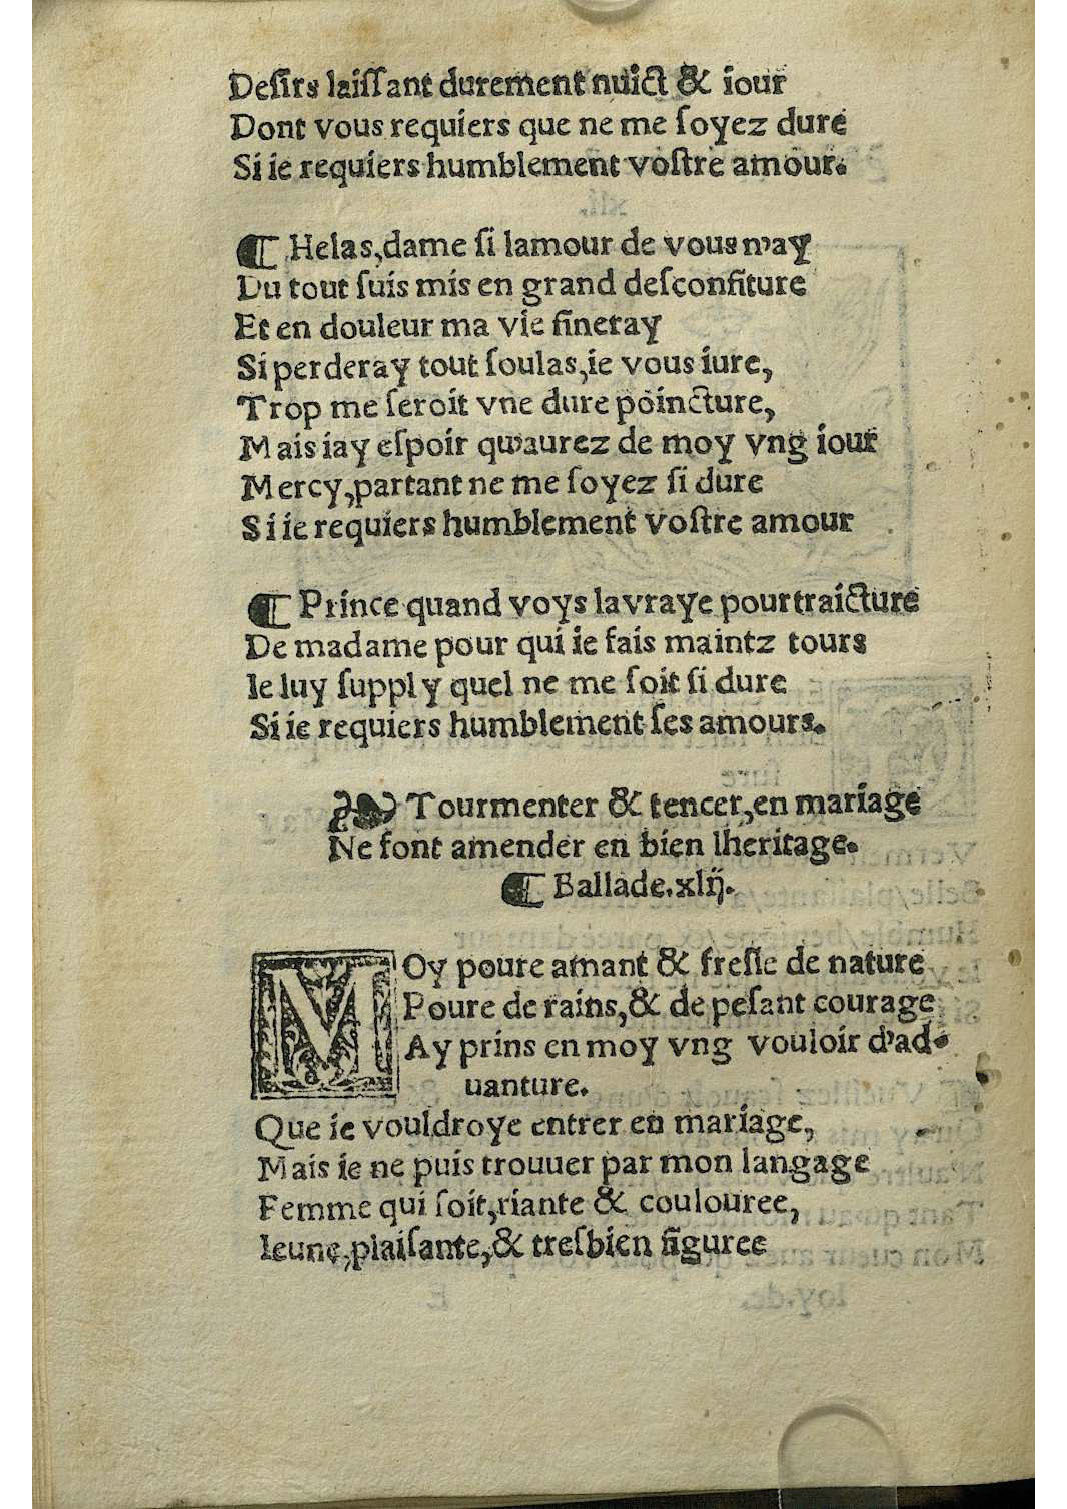 Deſirs laiſſant durement nuict & iour
Dont vous requiers que ne me ſoyez dure
Si ie requiers humblement voſtre amour.
¶ Helas, dame ſi lamour de vous n'ay
Du tout ſuis mis en grand deſconfiture
Et en douleur ma vie fineray
Si perderay tout ſoulas, ie vous iure,
Trop me ſeroit vne dure poincture,
Mais iay eſpoir qu'aurez de moy vng iour
Mercy, partant ne me ſoyez ſi dure
Si ie requiers humblement voſtre amour
¶ Prince quand voys la vraye pourtraicture
De madame pour qui ie fais maintz tours
Ie luy ſupply quel ne me ſoit ſi dure
Si ie requiers humblement ſes amours.
❧ Tourmenter & tencer, en mariage
Ne font amender en bien lheritage.
¶ Ballade. xlij.
MOy poure amant & freſle de nature
Poure de rains, & de peſant courage
Ay prins en moy vng vouloir d'ad-
uanture.
Que ie vouldroye entrer en mariage,
Mais ie ne puis trouuer par mon langage
Femme qui ſoit, riante & coulouree,
Ieune, plaiſante, & treſbien figuree